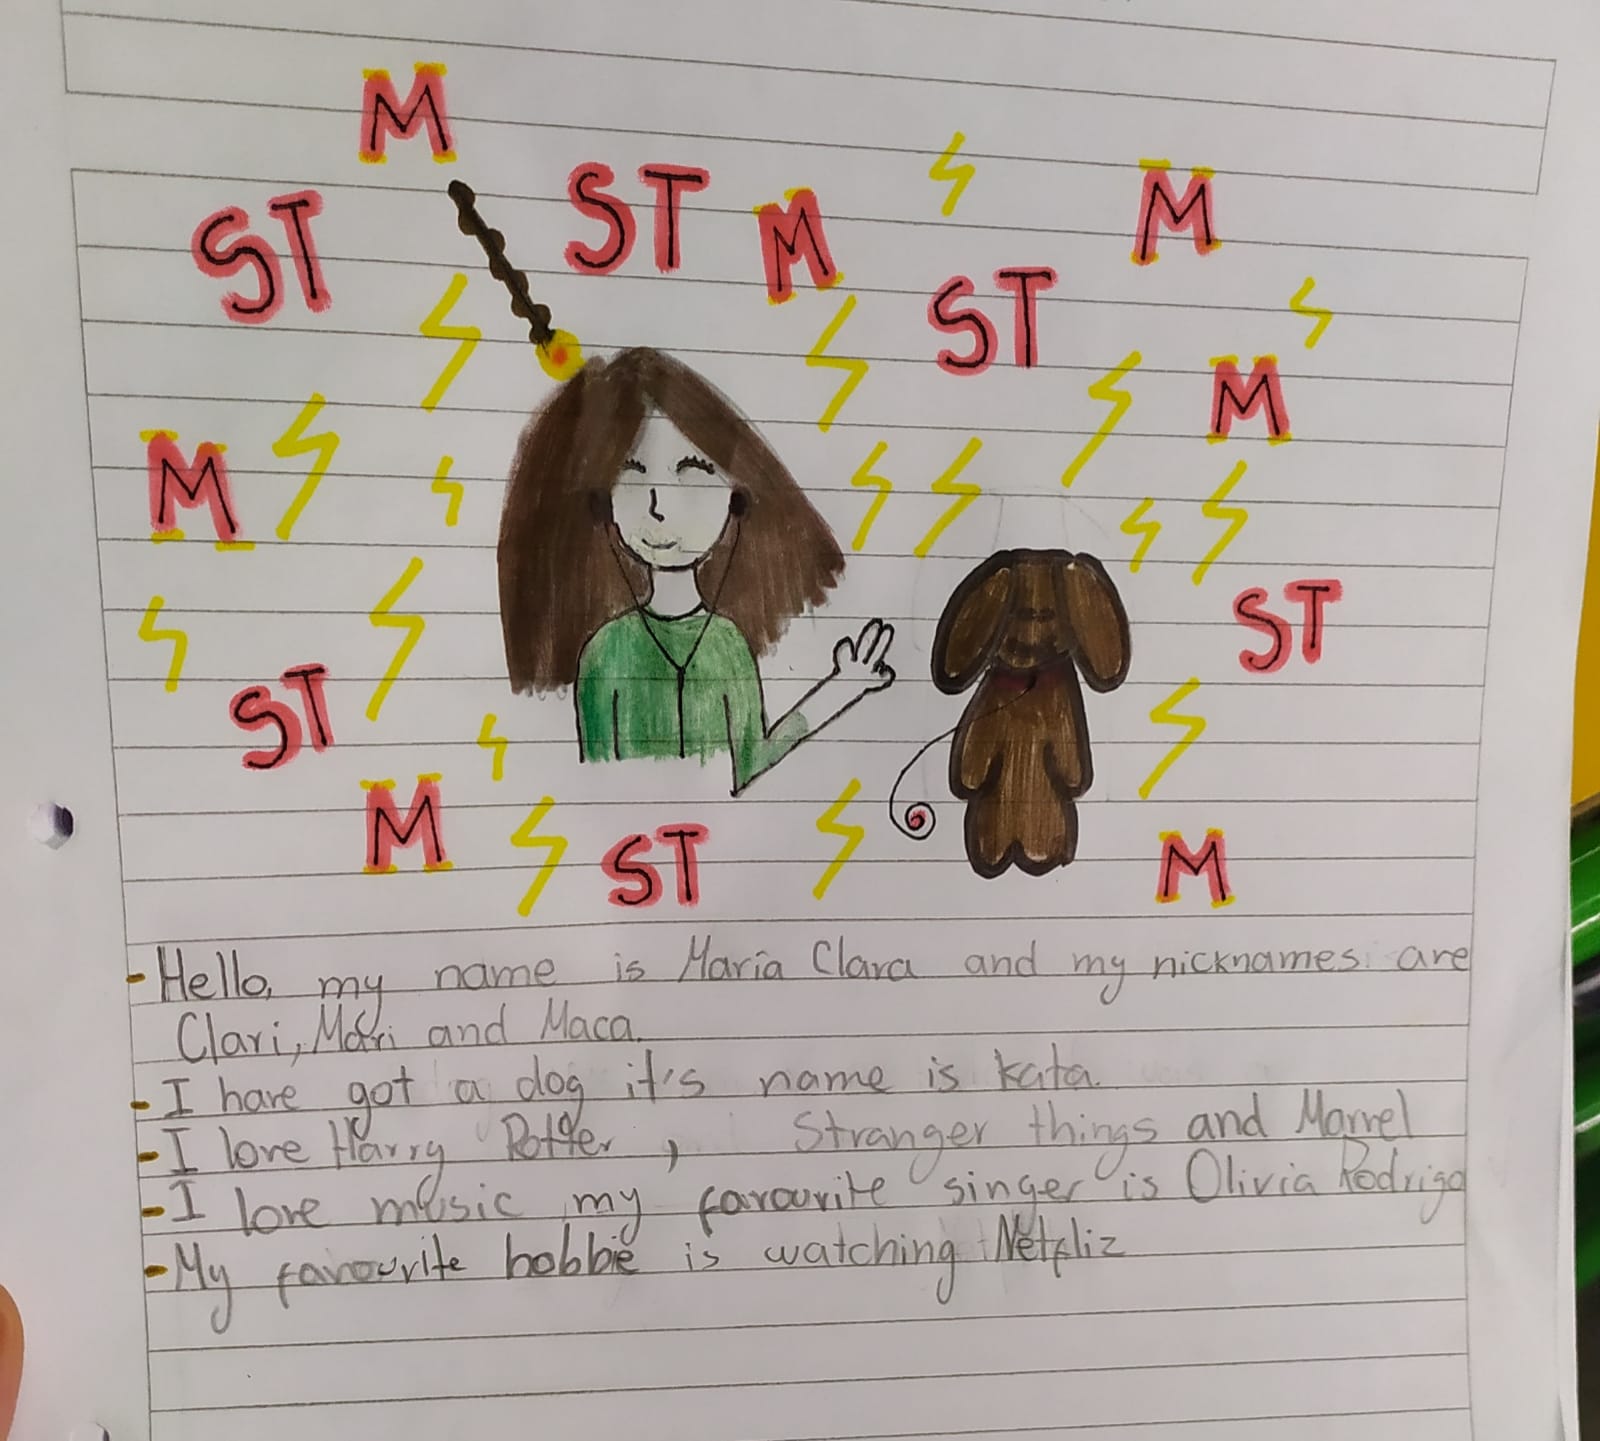 M
ST ST M M
ST
M
M
ST
ST
M ST M
- Hello, my name is María Clara and my nicknames are
Clari, Mari and Maca.
- I have got a dog it's name is kata.
- I love Harry Potter, Stranger things and Marvel
- I love music my favourite singer is Olivia Rodrigo
- My favourite hobbie is watching Netfliz